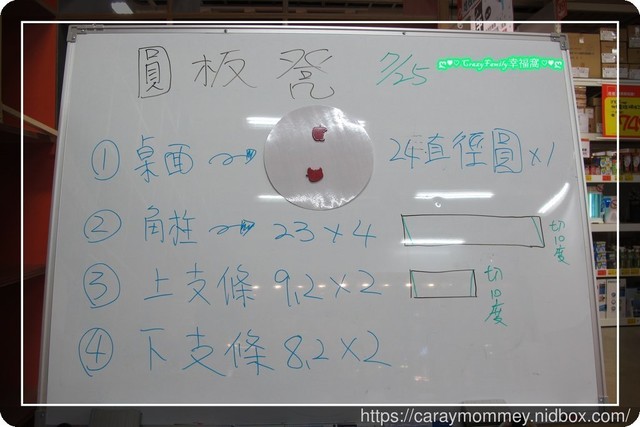 圓板凳 7/25
Crazy Family 幸福窩
① 桌面 24直徑圓x1
② 角柱 23x4 切10度
③ 上支條 9,2x2 切10度
④ 下支條 8,2x2
https://caraymommey.nidbox.com/